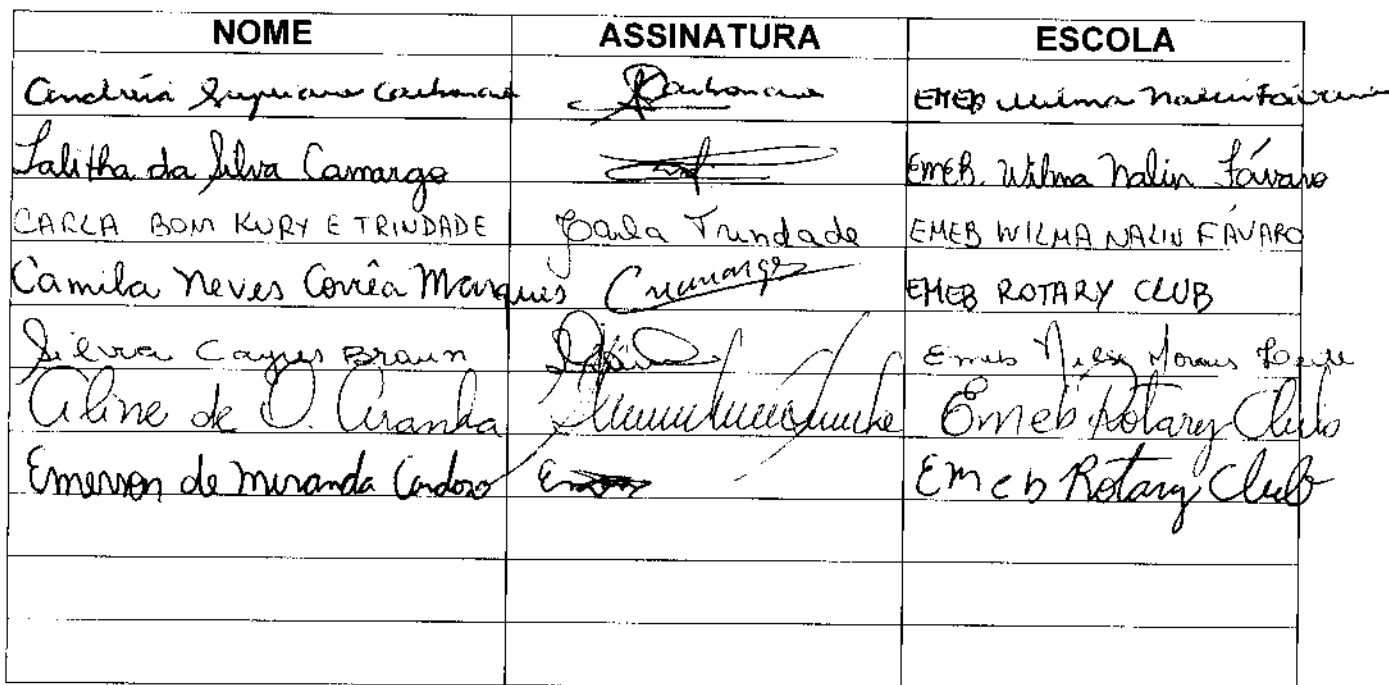 NOME ASSINATURA ESCOLA
Andréia Carbonari EMEB Wilma Nalin Fávaro
Talitha da Silva Camargo EMEB. Wilma Nalin Fávaro
CARLA BOM KURY E TRINDADE Carla Trindade EMEB WILMA NALIN FÁVARO
Camila Neves Corrêa Marques EMEB ROTARY CLUB
Silvia Cayres Braun Emeb Moraes
Aline de O. Aranha Emeb Rotary Club
Emerson de Miranda Cardoso Emeb Rotary Club